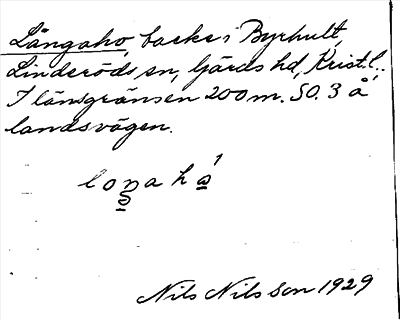 Långaho, backe i Byrhult,
Linderöds sn, Gärds hd, Krist.l.
I länsgränsen 200 m. SO. 3 å
landsvägen.
Nils Nilsson 1929